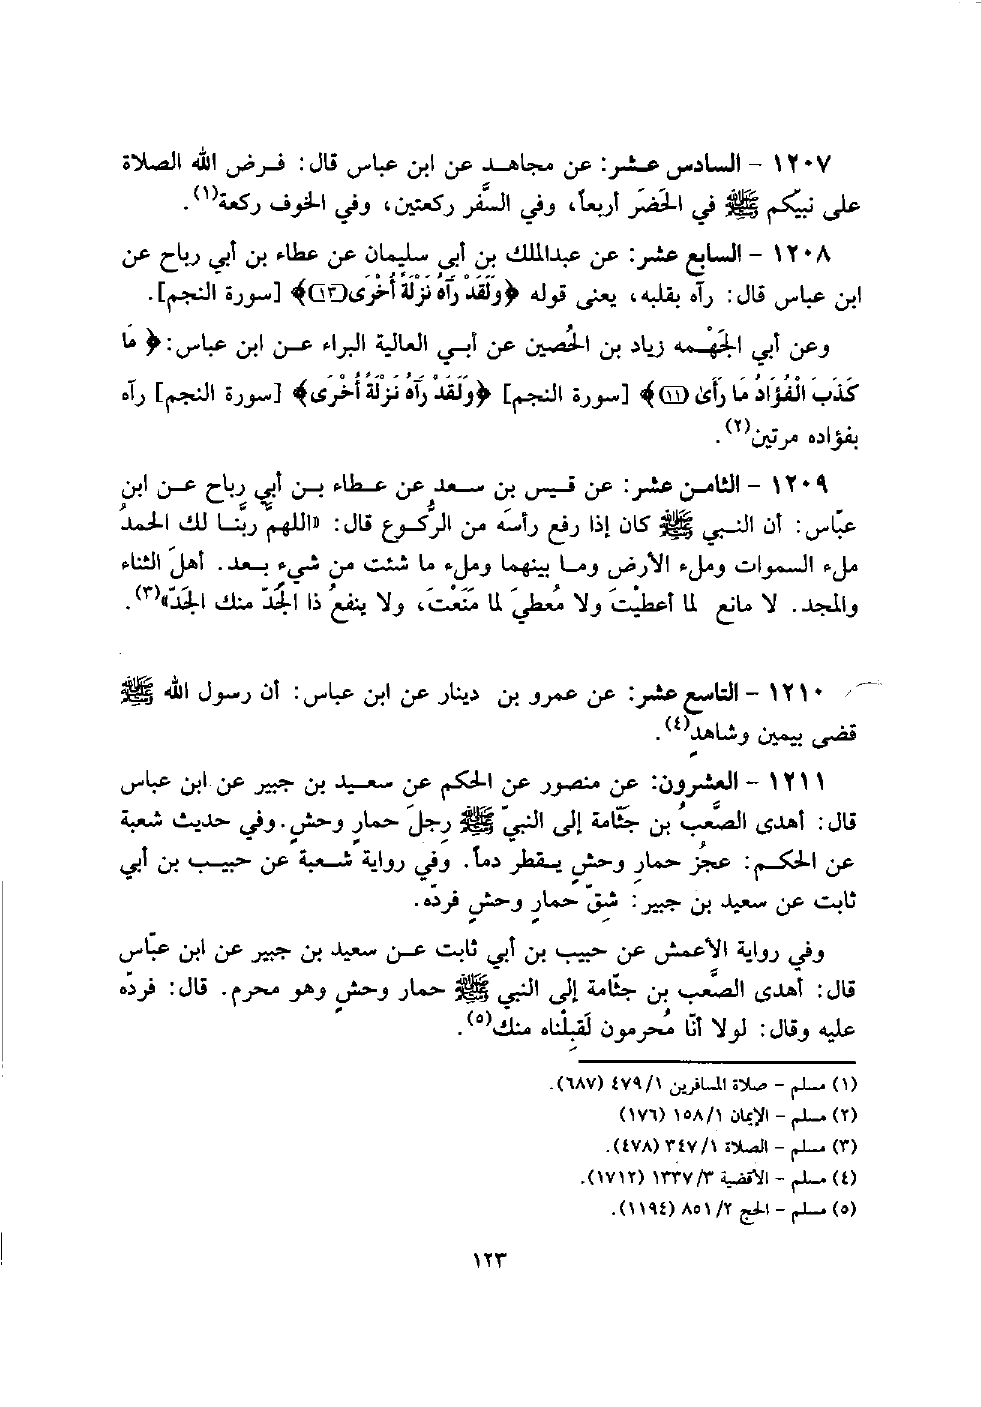 ١٢٠٧ - السادس عشر: عن مجاهد عن ابن عباس قال: فرض الله الصلاة
على نبيّكم ﷺ في الحَضَر أربعاً، وفي السَّفَر ركعتين، وفي الخوف ركعة(١).
١٢٠٨ - السابع عشر: عن عبدالملك بن أبي سليمان عن عطاء بن أبي رباح عن
ابن عباس قال: رآه بقلبه، يعنى قوله ﴿وَلَقَدْ رَآهُ نَزْلَةً أُخْرَى (١٣)﴾ [سورة النجم].
وعن أبي الجَهْمه زياد بن الحُصين عن أبي العالية البراء عن ابن عباس: ﴿مَا
كَذَبَ الْفُؤَادُ مَا رَأَىٰ (١١)﴾ [سورة النجم] ﴿وَلَقَدْ رَآهُ نَزْلَةً أُخْرَى﴾ [سورة النجم] رآه
بفؤاده مرتين(٢).
١٢٠٩ - الثامن عشر: عن قيس بن سعد عن عطاء بن أبي رباح عن ابن
عبّاس: أن النبي ﷺ كان إذا رفع رأسَه من الرُّكوع قال: «اللهمّ ربَّنا لك الحمدُ
ملء السموات وملء الأرض وما بينهما وملء ما شئت من شيءٍ بعد. أهلَ الثناء
والمجد. لا مانع لما أعطيْتَ ولا مُعطيَ لما مَنَعْتَ، ولا ينفعُ ذا الجَدّ منك الجَدّ»(٣).
١٢١٠ - التاسع عشر: عن عمرو بن دينار عن ابن عباس: أن رسول الله ﷺ
قضى بيمين وشاهدٍ(٤).
١٢١١ - العشرون: عن منصور عن الحكم عن سعيد بن جبير عن ابن عباس
قال: أهدى الصَّعبُ بن جَثّامة إلى النبيّ ﷺ رِجلَ حمارِ وحشٍ. وفي حديث شعبة
عن الحكم: عجزُ حمارِ وحشٍ يقطر دماً. وفي رواية شعبة عن حبيب بن أبي
ثابت عن سعيد بن جبير: شِقّ حمارِ وحشٍ فردّه.
وفي رواية الأعمش عن حبيب بن أبي ثابت عن سعيد بن جبير عن ابن عبّاس
قال: أهدى الصَّعب بن جثّامة إلى النبي ﷺ حمار وحشٍ وهو محرم. قال: فردّه
عليه وقال: لولا أنّا مُحرمون لَقبِلْناه منك(٥).
(١) مسلم - صلاة المسافرين ١/ ٤٧٩ (٦٨٧).
(٢) مسلم - الإيمان ١/ ١٥٨ (١٧٦)
(٣) مسلم - الصلاة ١/ ٣٤٧ (٤٧٨).
(٤) مسلم - الأقضية ٣/ ١٣٣٧ (١٧١٢).
(٥) مسلم - الحج ٢/ ٨٥١ (١١٩٤).
١٢٣